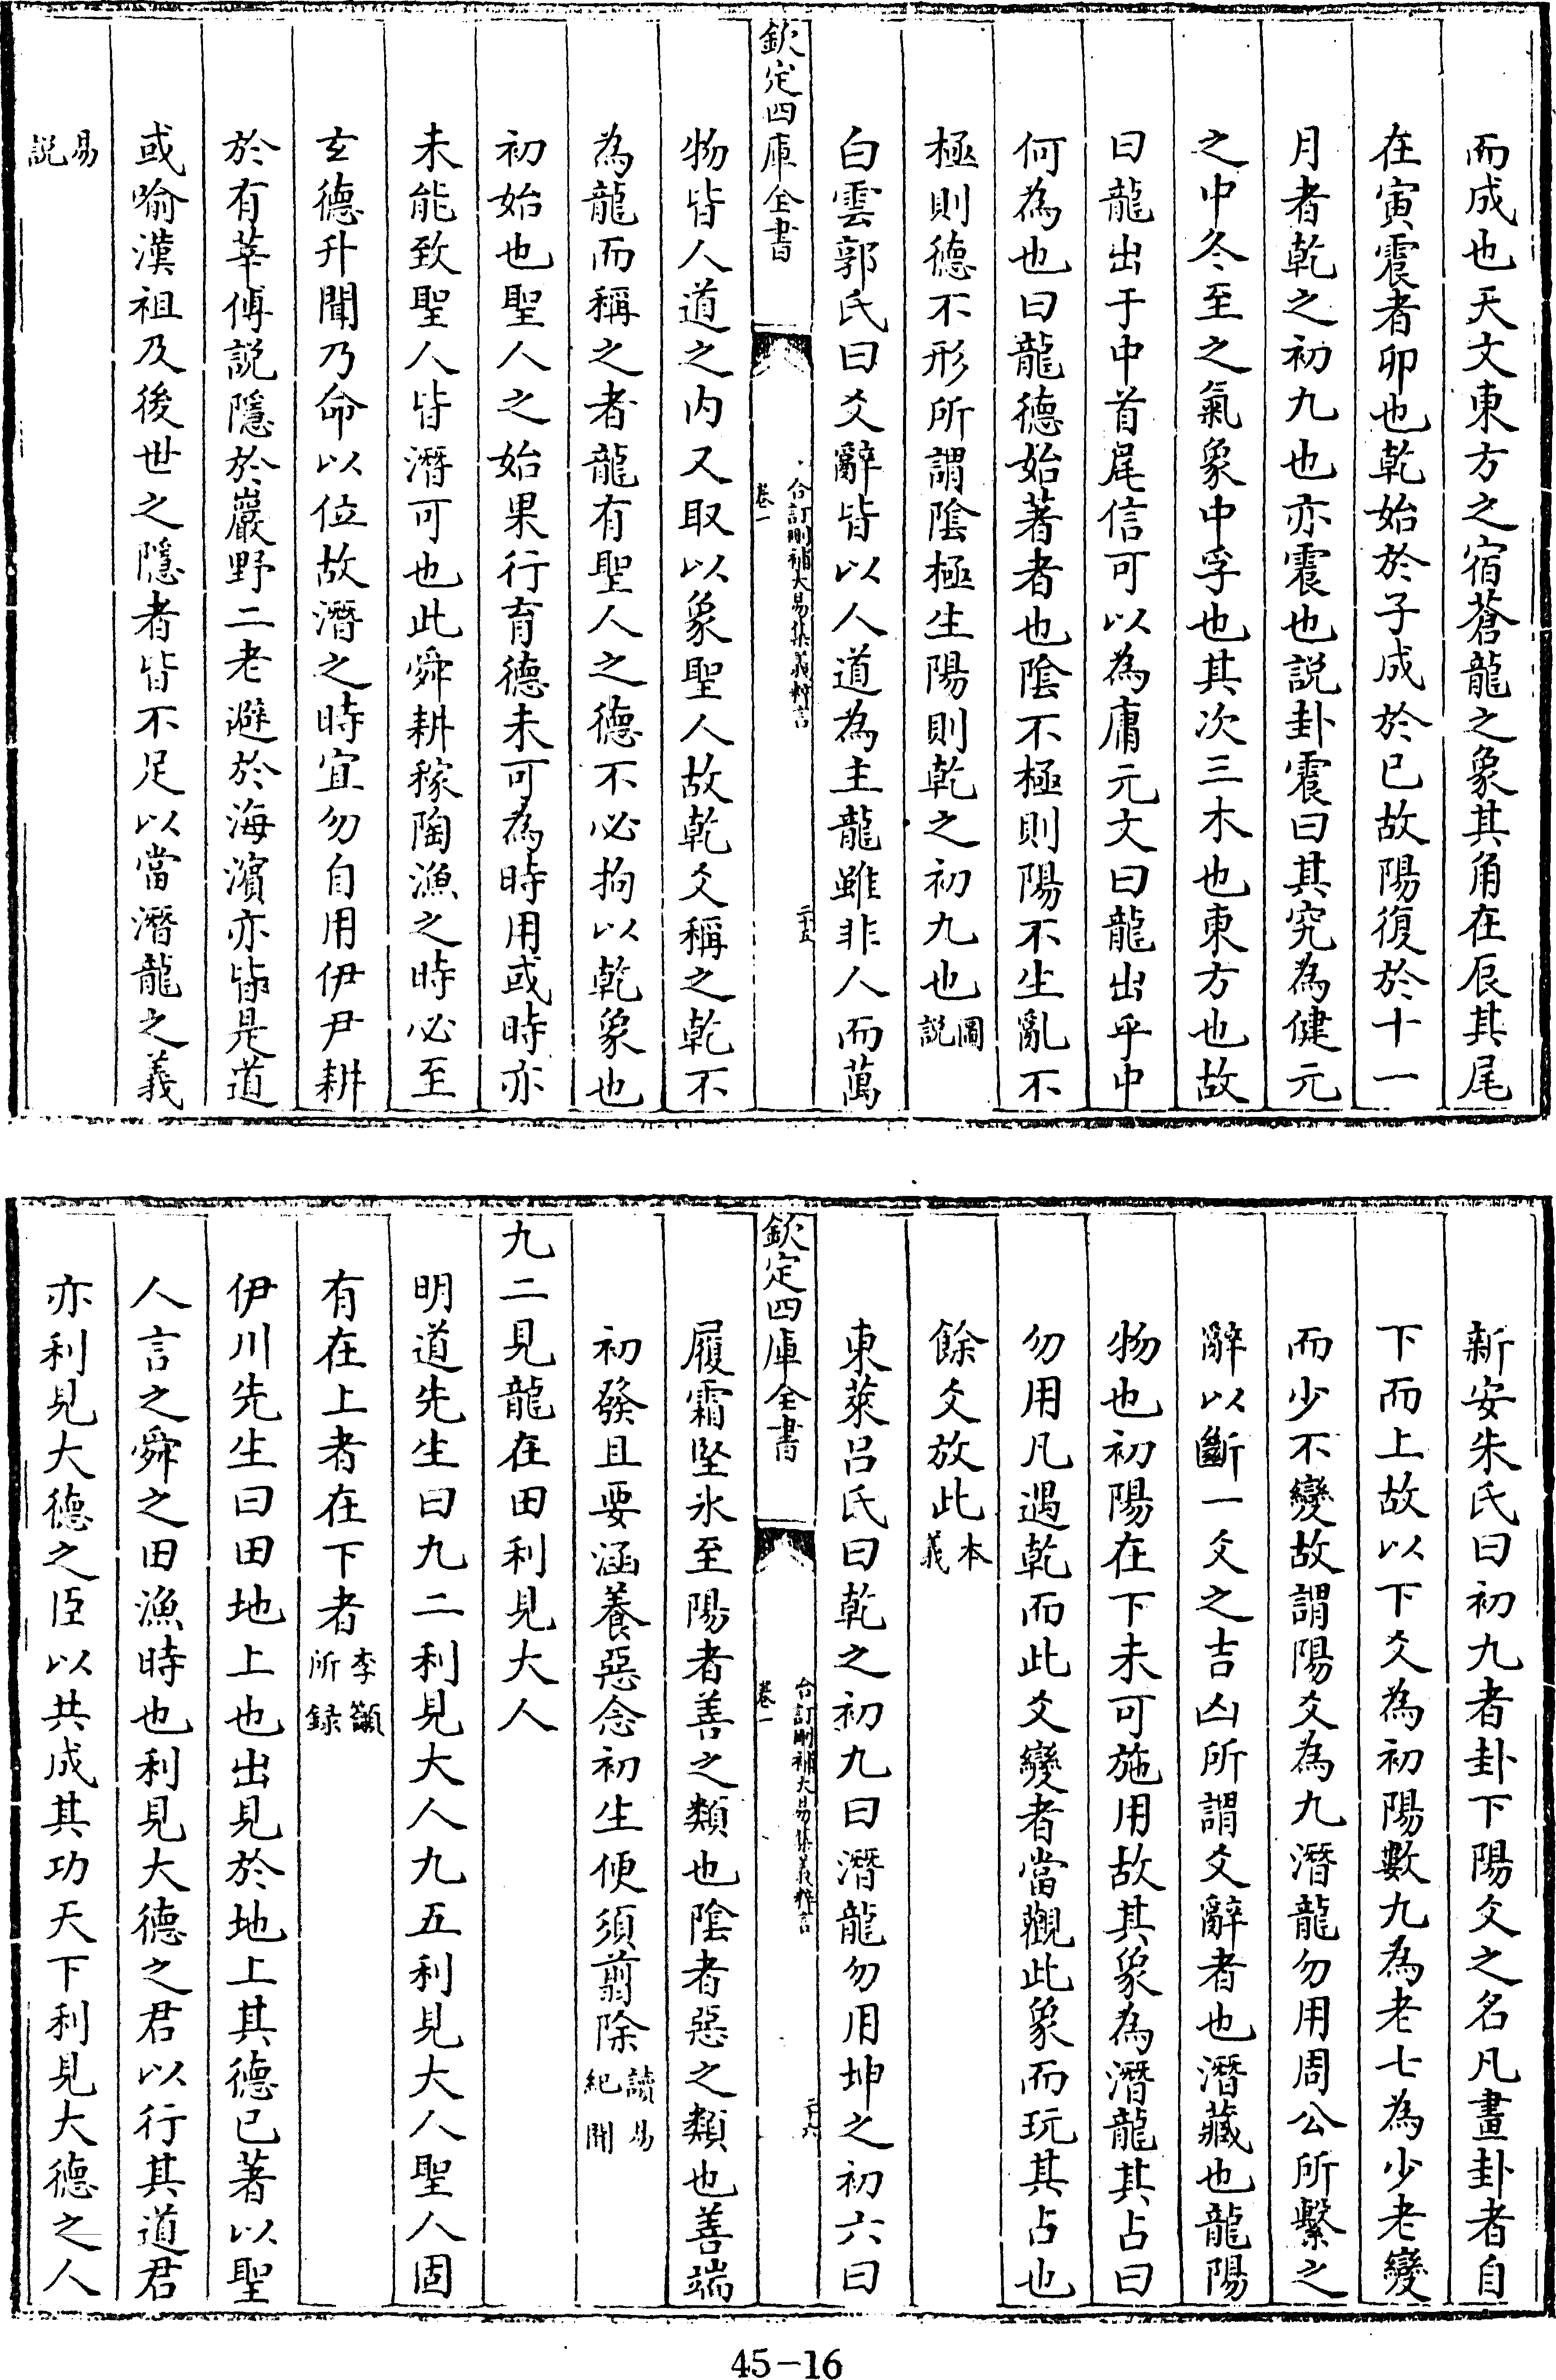 而成也天文東方之宿蒼龍之象其角在辰其尾
在寅震者卯也乾始於子成於巳故陽復於十一
月者乾之初九也亦震也説卦震曰其究為健元
之中冬至之氣象中孚也其次三木也東方也故
曰龍出于中首尾信可以為庸元文曰龍出乎中
何為也曰龍德始著者也陰不極則陽不生亂不
極則德不形所謂陰極生陽則乾之初九也圖説
白雲郭氏曰爻辭皆以人道為主龍雖非人而萬
欽定四庫全書
合訂刪補大易集義粹言
卷一
二十五
物皆人道之内又取以象聖人故乾爻稱之乾不
為龍而稱之者龍有聖人之德不必拘以乾象也
初始也聖人之始果行育德未可為時用或時亦
未能致聖人皆潛可也此舜耕稼陶漁之時必至
玄德升聞乃命以位故潛之時宜勿自用伊尹耕
於有莘傅説隱於巖野二老避於海濱亦皆是道
或喻漢祖及後世之隱者皆不足以當潛龍之義
易説
新安朱氏曰初九者卦下陽爻之名凡畫卦者自
下而上故以下爻為初陽數九為老七為少老變
而少不變故謂陽爻為九潛龍勿用周公所繫之
辭以斷一爻之吉凶所謂爻辭者也潛藏也龍陽
物也初陽在下未可施用故其象為潛龍其占曰
勿用凡遇乾而此爻變者當觀此象而玩其占也
餘爻放此本義
東萊呂氏曰乾之初九曰潛龍勿用坤之初六曰
欽定四庫全書
合訂刪補大易集義粹言
卷一
二十六
履霜堅氷至陽者善之類也陰者惡之類也善端
初發且要涵養惡念初生便須翦除讀易紀聞
九二見龍在田利見大人
明道先生曰九二利見大人九五利見大人聖人固
有在上者在下者李籲所録
伊川先生曰田地上也出見於地上其德已著以聖
人言之舜之田漁時也利見大德之君以行其道君
亦利見大德之臣以共成其功天下利見大德之人
45-16